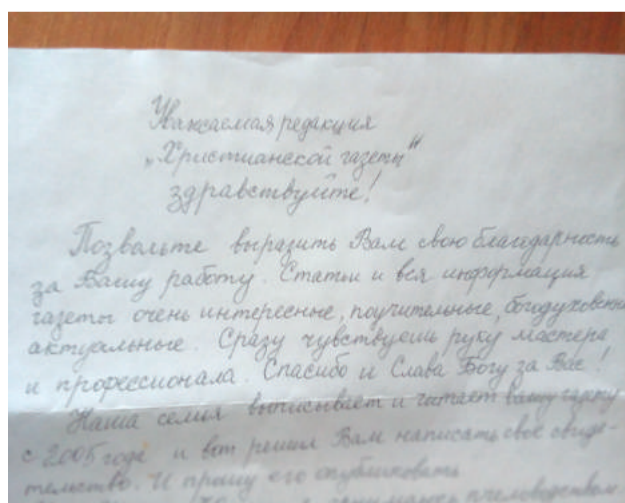 Уважаемая редакция
„Христианской газеты"
здравствуйте!
Позвольте выразить Вам свою благодарность
за Вашу работу. Статьи и вся информация
газеты очень интересные, поучительные,
актуальные. Сразу чувствуешь руку мастера
и профессионала. Спасибо и Слава Богу за Вас!
Наша семья выписывает и читает вашу газету
с 2005 года и вот решил Вам написать своё свиде-
тельство. И прошу его опубликовать